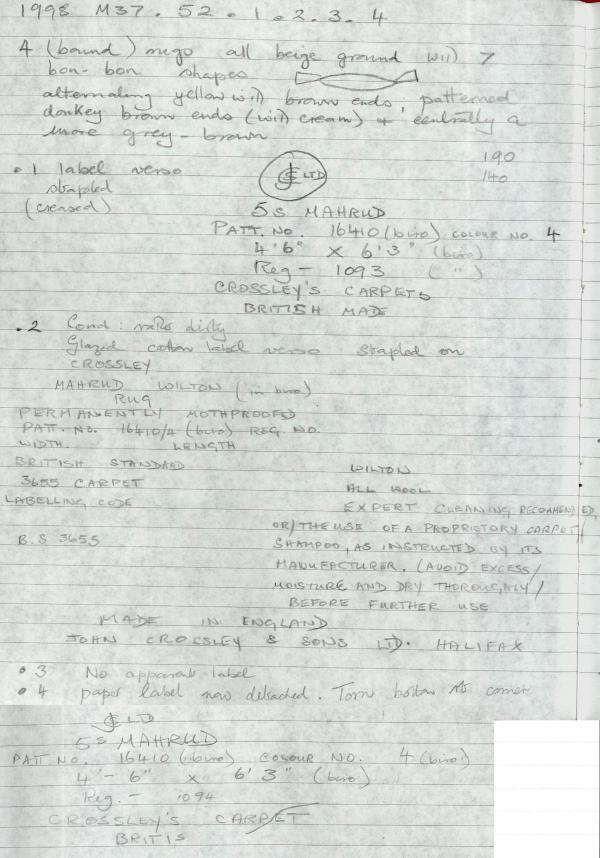 1998 M37. 52. 1. 2. 3. 4
4 (bound) rugs all beige ground with 7
bon-bon shapes
alternating yellow with brown ends, patterned
donkey brown ends (with cream) + centrally a
more grey-brown
190
140
.1 label verso
strapled
(creased)
JC LTD
5S MAHRUD
PATT. NO. 16410 (biro) COLOUR NO. 4
4'6" X 6'3" (biro)
Reg - 1093 ( " )
CROSSLEY'S CARPETS
BRITISH MADE
.2 Cond: dirty
Glazed cotton label verso strapled on
CROSSLEY
MAHRUD WILTON (in biro)
RUG
PERMANENTLY MOTHPROOFED
PATT. NO. 16410/4 (biro) REG. NO.
WIDTH. LENGTH
BRITISH STANDARD
3655 CARPET
LABELLING CODE
B.S 3655
WILTON
ALL WOOL
EXPERT CLEANING RECOMMENDED,
OR/THE USE OF A PROPRIETORY CARPET/
SHAMPOO, AS INSTRUCTED BY ITS
MANUFACTURER. (AVOID EXCESS/
MOISTURE AND DRY THOROUGHLY/
BEFORE FURTHER USE
MADE IN ENGLAND
JOHN CROSSLEY & SONS LTD. HALIFAX
.3 No apparent label
.4 paper label now detached. Torn bottom corner
JC LTD
5S MAHRUD
PATT NO. 16410 (biro) COLOUR NO. 4 (biro)
4'-6" x 6'3" (biro)
Reg. - 1094
CROSSLEY'S CARPET
BRITIS